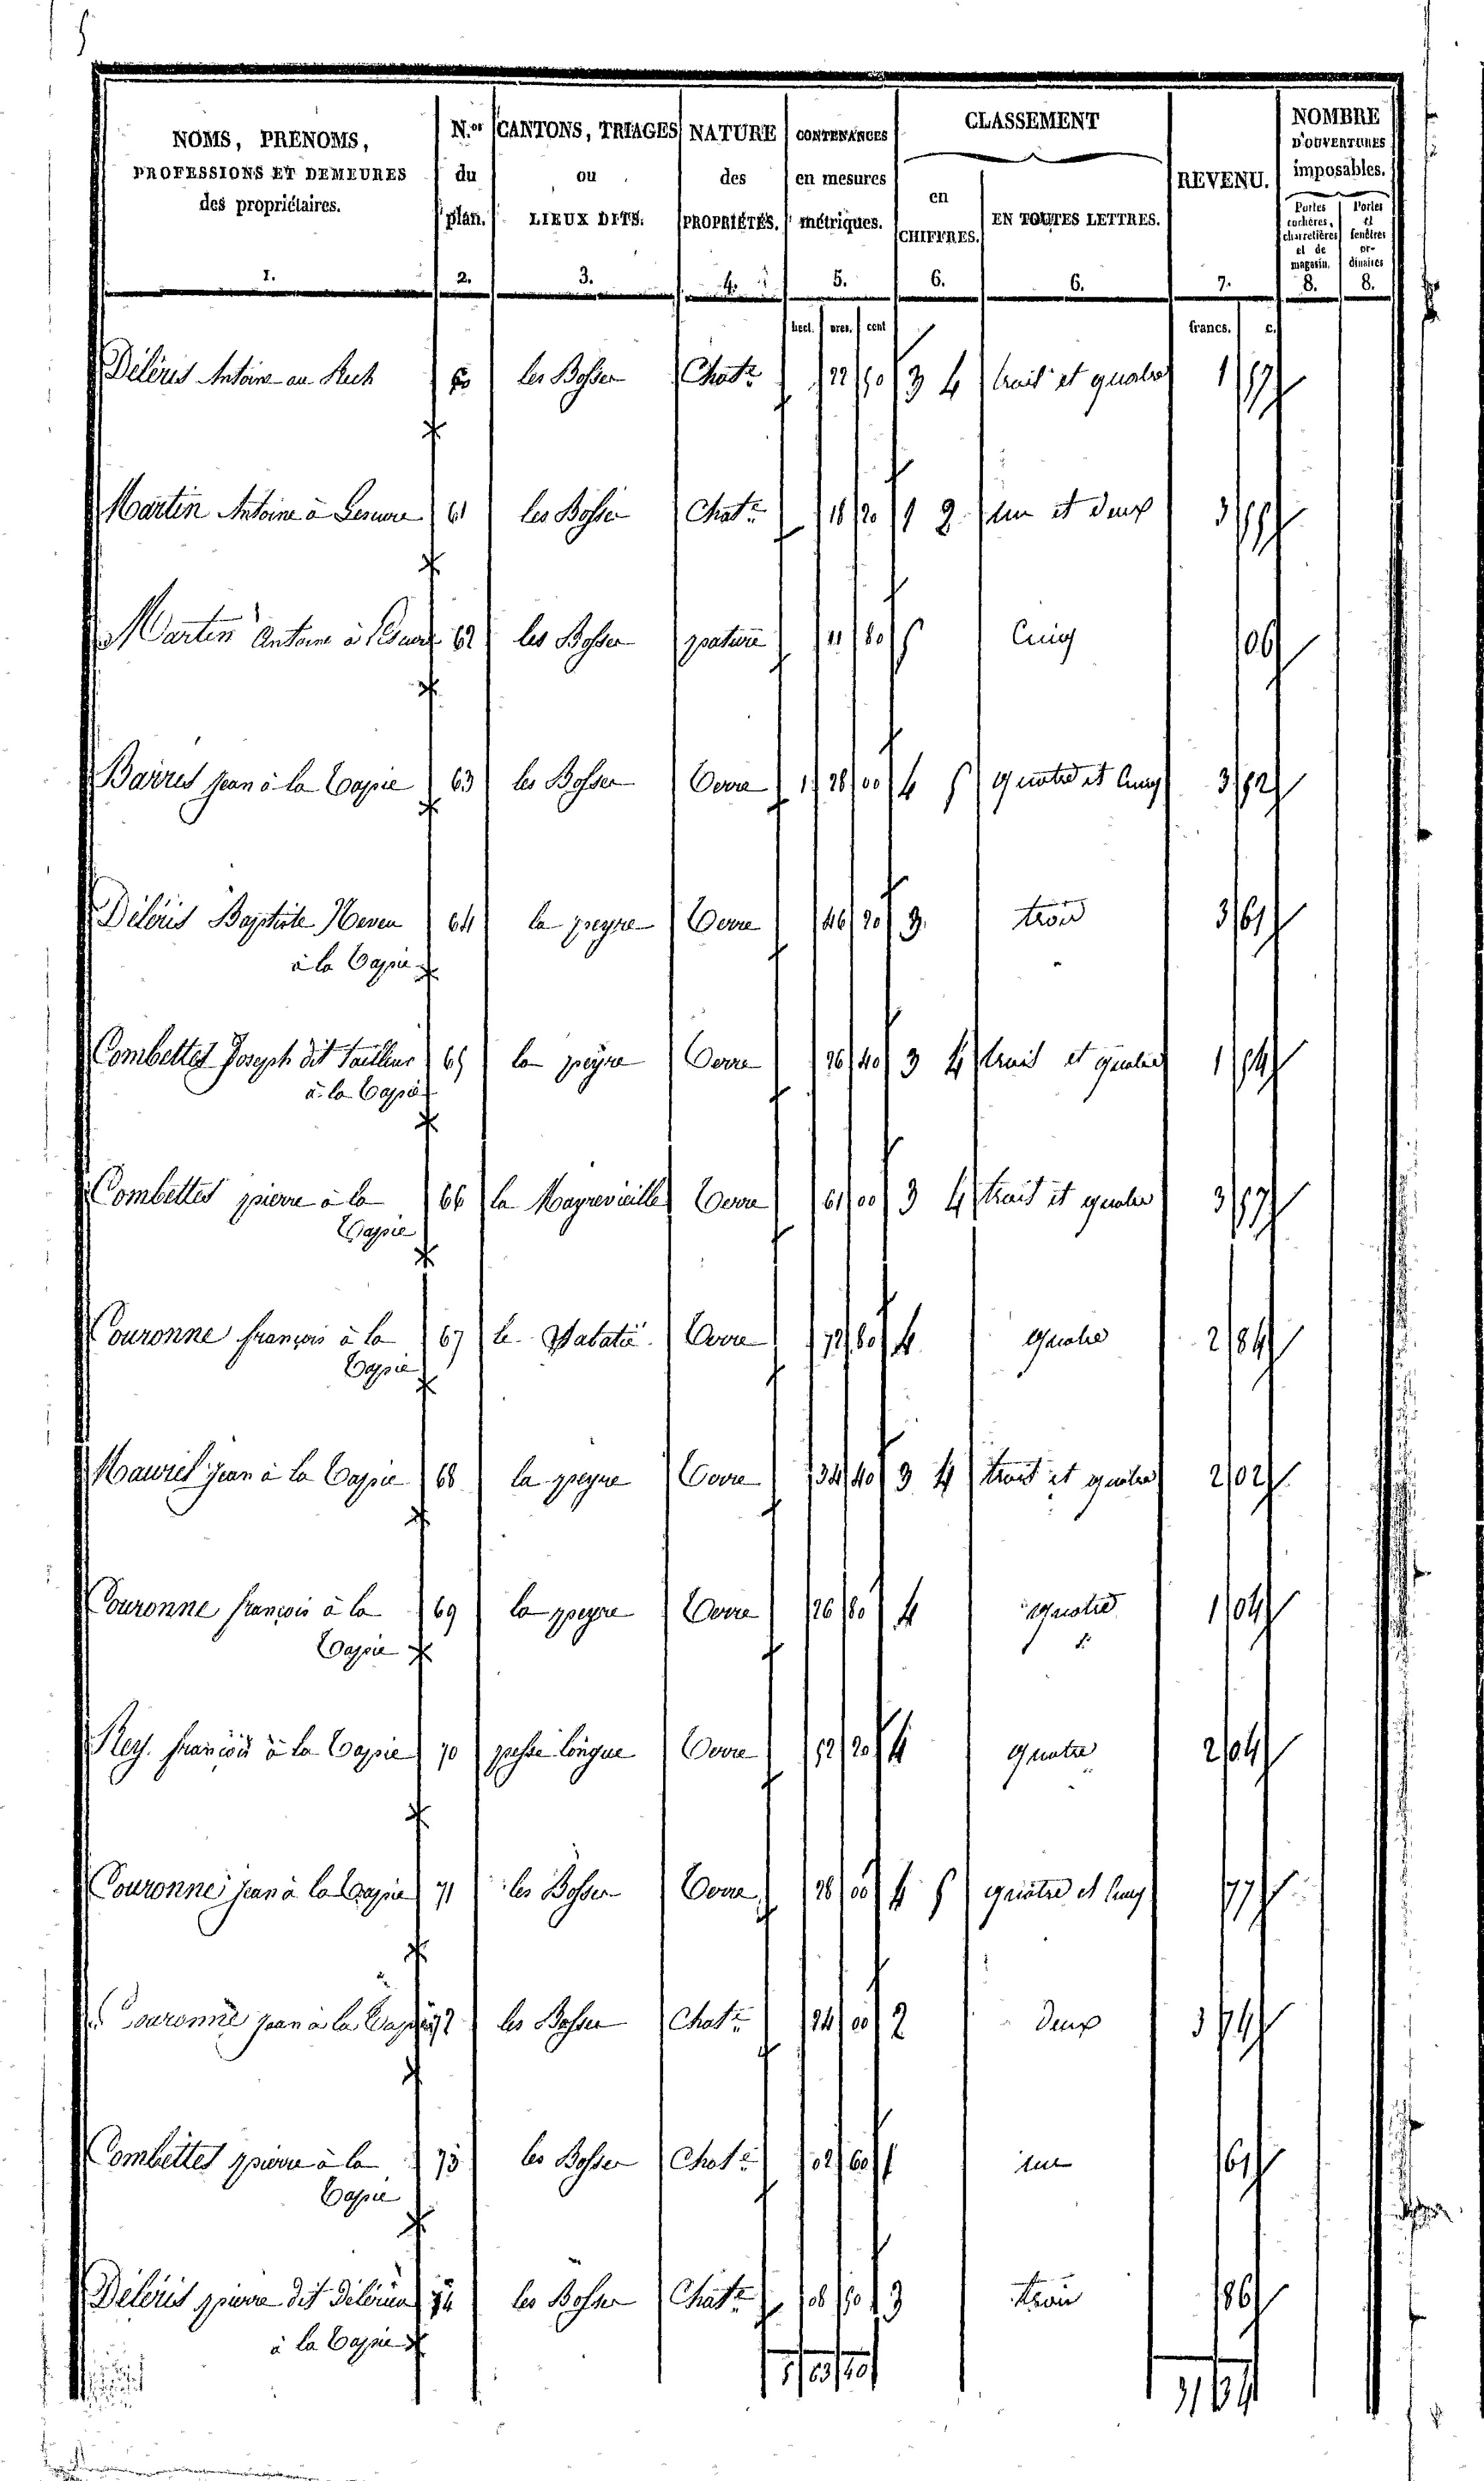 5
NOMS, PRENOMS, PROFESSIONS ET DEMEURES des propriétaires. 1.
N.os du plan. 2.
CANTONS, TRIAGES ou LIEUX DITS. 3.
NATURE des PROPRIÉTÉS. 4.
CONTENANCES en mesures métriques. 5.
CLASSEMENT
en CHIFFRES. 6.
EN TOUTES LETTRES. 6.
REVENU. 7.
NOMBRE D'OUVERTURES imposables.
Portes cochères, charretières et de magasin. 8.
Portes et fenêtres ordinaires 8.
hect. ares. cent francs. c.
Déléris Antoine au Rech 60 les Bosser Chat.re 22 50 3 4 trois et quatre 1 57
Martin Antoine à 61 les Bosser Chat.re 18 20 1 2 un et deux 3 55
Martin Antoine à 62 les Bosser pature 11 80 5 Cinq 06
Barres jean à la Capie 63 les Bosser Terre 1 28 00 4 5 quatre et Cinq 3 52
Déléris Baptiste Neveu 64 la peyre Terre 46 20 3 trois 3 61
à la Capie
Combettes Joseph dit Tailleur 65 la peyre Terre 26 40 3 4 trois et quatre 1 54
à la Capie
Combettes pierre à la 66 la Mayrevieille Terre 61 00 3 4 trois et quatre 3 57
Capie
Couronne françois à la 67 le Terre 72 80 4 quatre 2 84
Capie
Maurel jean à la Capie 68 la peyre Terre 34 40 3 4 trois et quatre 2 02
Couronne françois à la 69 la peyre Terre 26 80 4 quatre 1 04
Capie
Rey françois à la Capie 70 longue Terre 52 20 4 quatre 2 04
Couronne jean à la Capie 71 les Bosser Terre 28 00 4 5 quatre et Cinq 77
Couronne jean à la Capie 72 les Bosser Chat.re 24 00 2 deux 3 74
Combettes pierre à la 73 les Bosser Chat.re 02 60 1 une 61
Capie
Déléris pierre dit 74 les Bosser Chat.re 08 50 3 trois 86
à la Capie
5 63 40 31 34